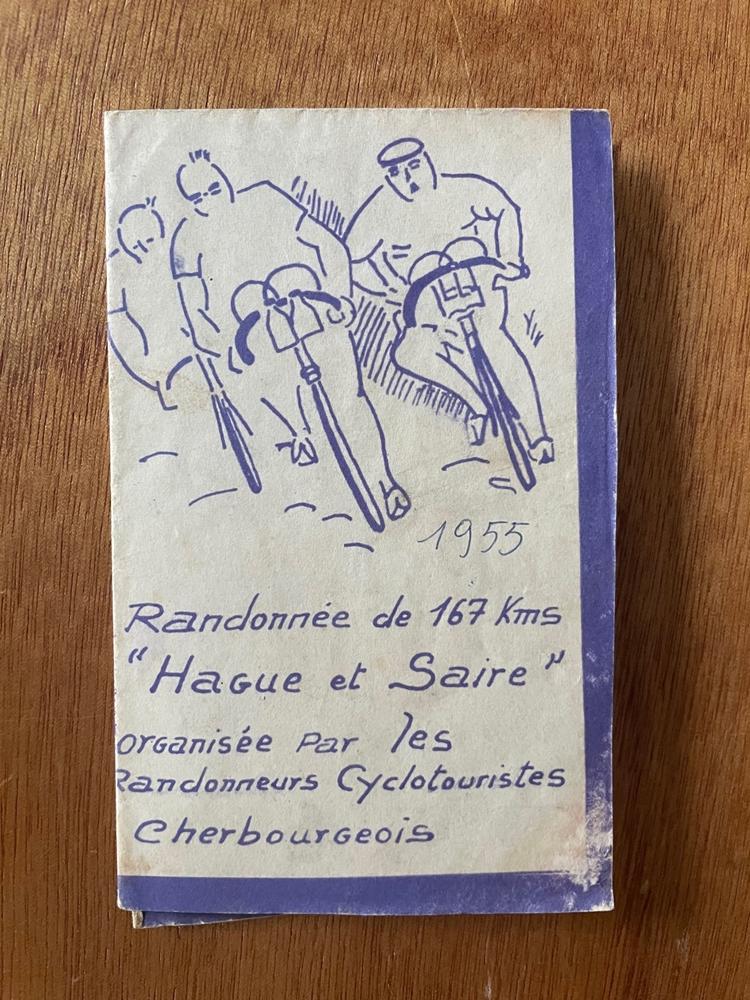 1955
Randonnée de 167 Kms
"Hague et Saire"
organisée Par les
Randonneurs Cyclotouristes
Cherbourgeois